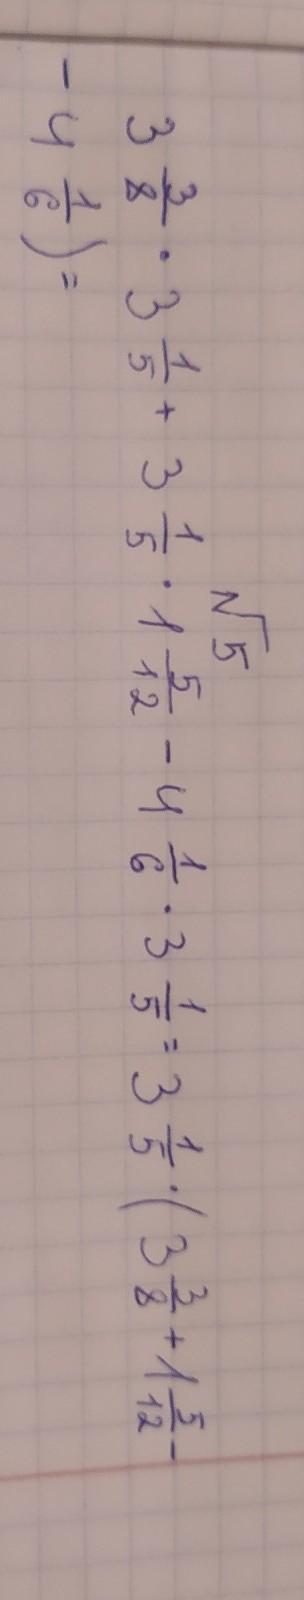 √5
3 3/8 · 3 1/5 + 3 1/5 · 1 5/12 - 4 1/6 · 3 1/5 = 3 1/5 · ( 3 3/8 + 1 5/12 -
- 4 1/6 ) =